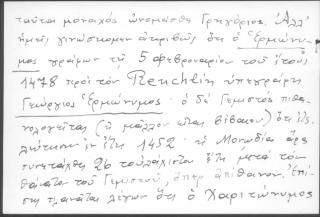 ταῦτα μοναχὸς ὠνομάσθη Γρηγόριος. Ἀλλ'
ἡμεῖς γινώσκομεν ἀκριβῶς ὅτι ὁ Ἑρμώνυ-
μος γράφων τῇ 5 φεβρουαρίου τοῦ ἔτους
1478 πρὸς τὸν Reuchlin ὑπεγράφη
Γεώργιος Ἑρμώνυμος· ὁ δὲ Γεμιστὸς πιθα-
νολογεῖται (ἢ μᾶλλον εἶναι βέβαιον) ὅτι ἐτε-
λεύτησεν ἐν ἔτει 1452. ἡ Μονῳδία ἄρα
συνετάχθη 26 τοὐλάχιστον ἔτη μετὰ τὸν
θάνατον τοῦ Γεμιστοῦ, ὅπερ ἀπίθανον. Ἐπί-
σης πλανᾶται λέγων ὅτι ὁ Χαριτώνυμος